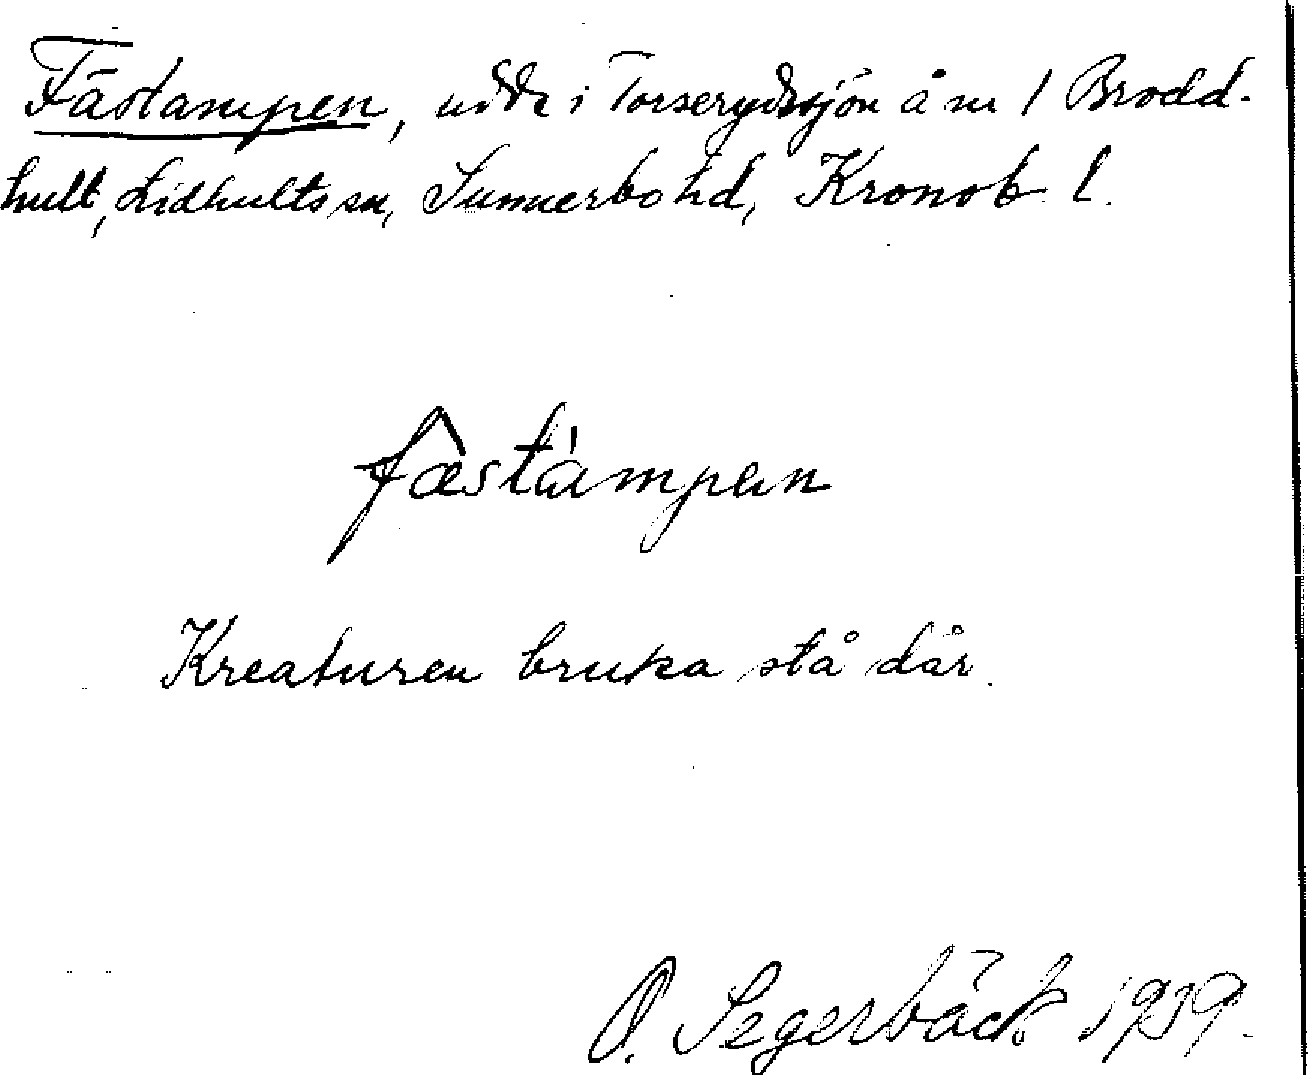 Fästampen, udde i Torserydssjön å nr 1 Brodd-
hult, Lidhults sn, Sunnerbo hd, Kronob. l.
fæstàmpen
Kreaturen bruka stå där.
O. Segerbäck 1939.